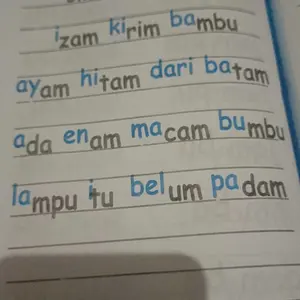 izam kirim bambu
ayam hitam dari batam
ada enam macam bumbu
lampu itu belum padam